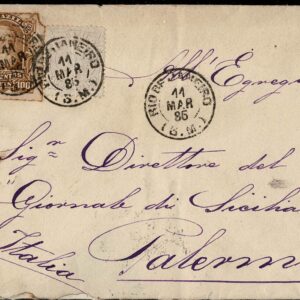 RIO DE JANEIRO
11
MAR
86
(S.M.)
11
MAR
RIO DE JANEIRO
11
MAR
86
(S.M.)
100
All'Egreg
Sigr Direttore del
"Giornale di Sicilia
Palerm
Italia